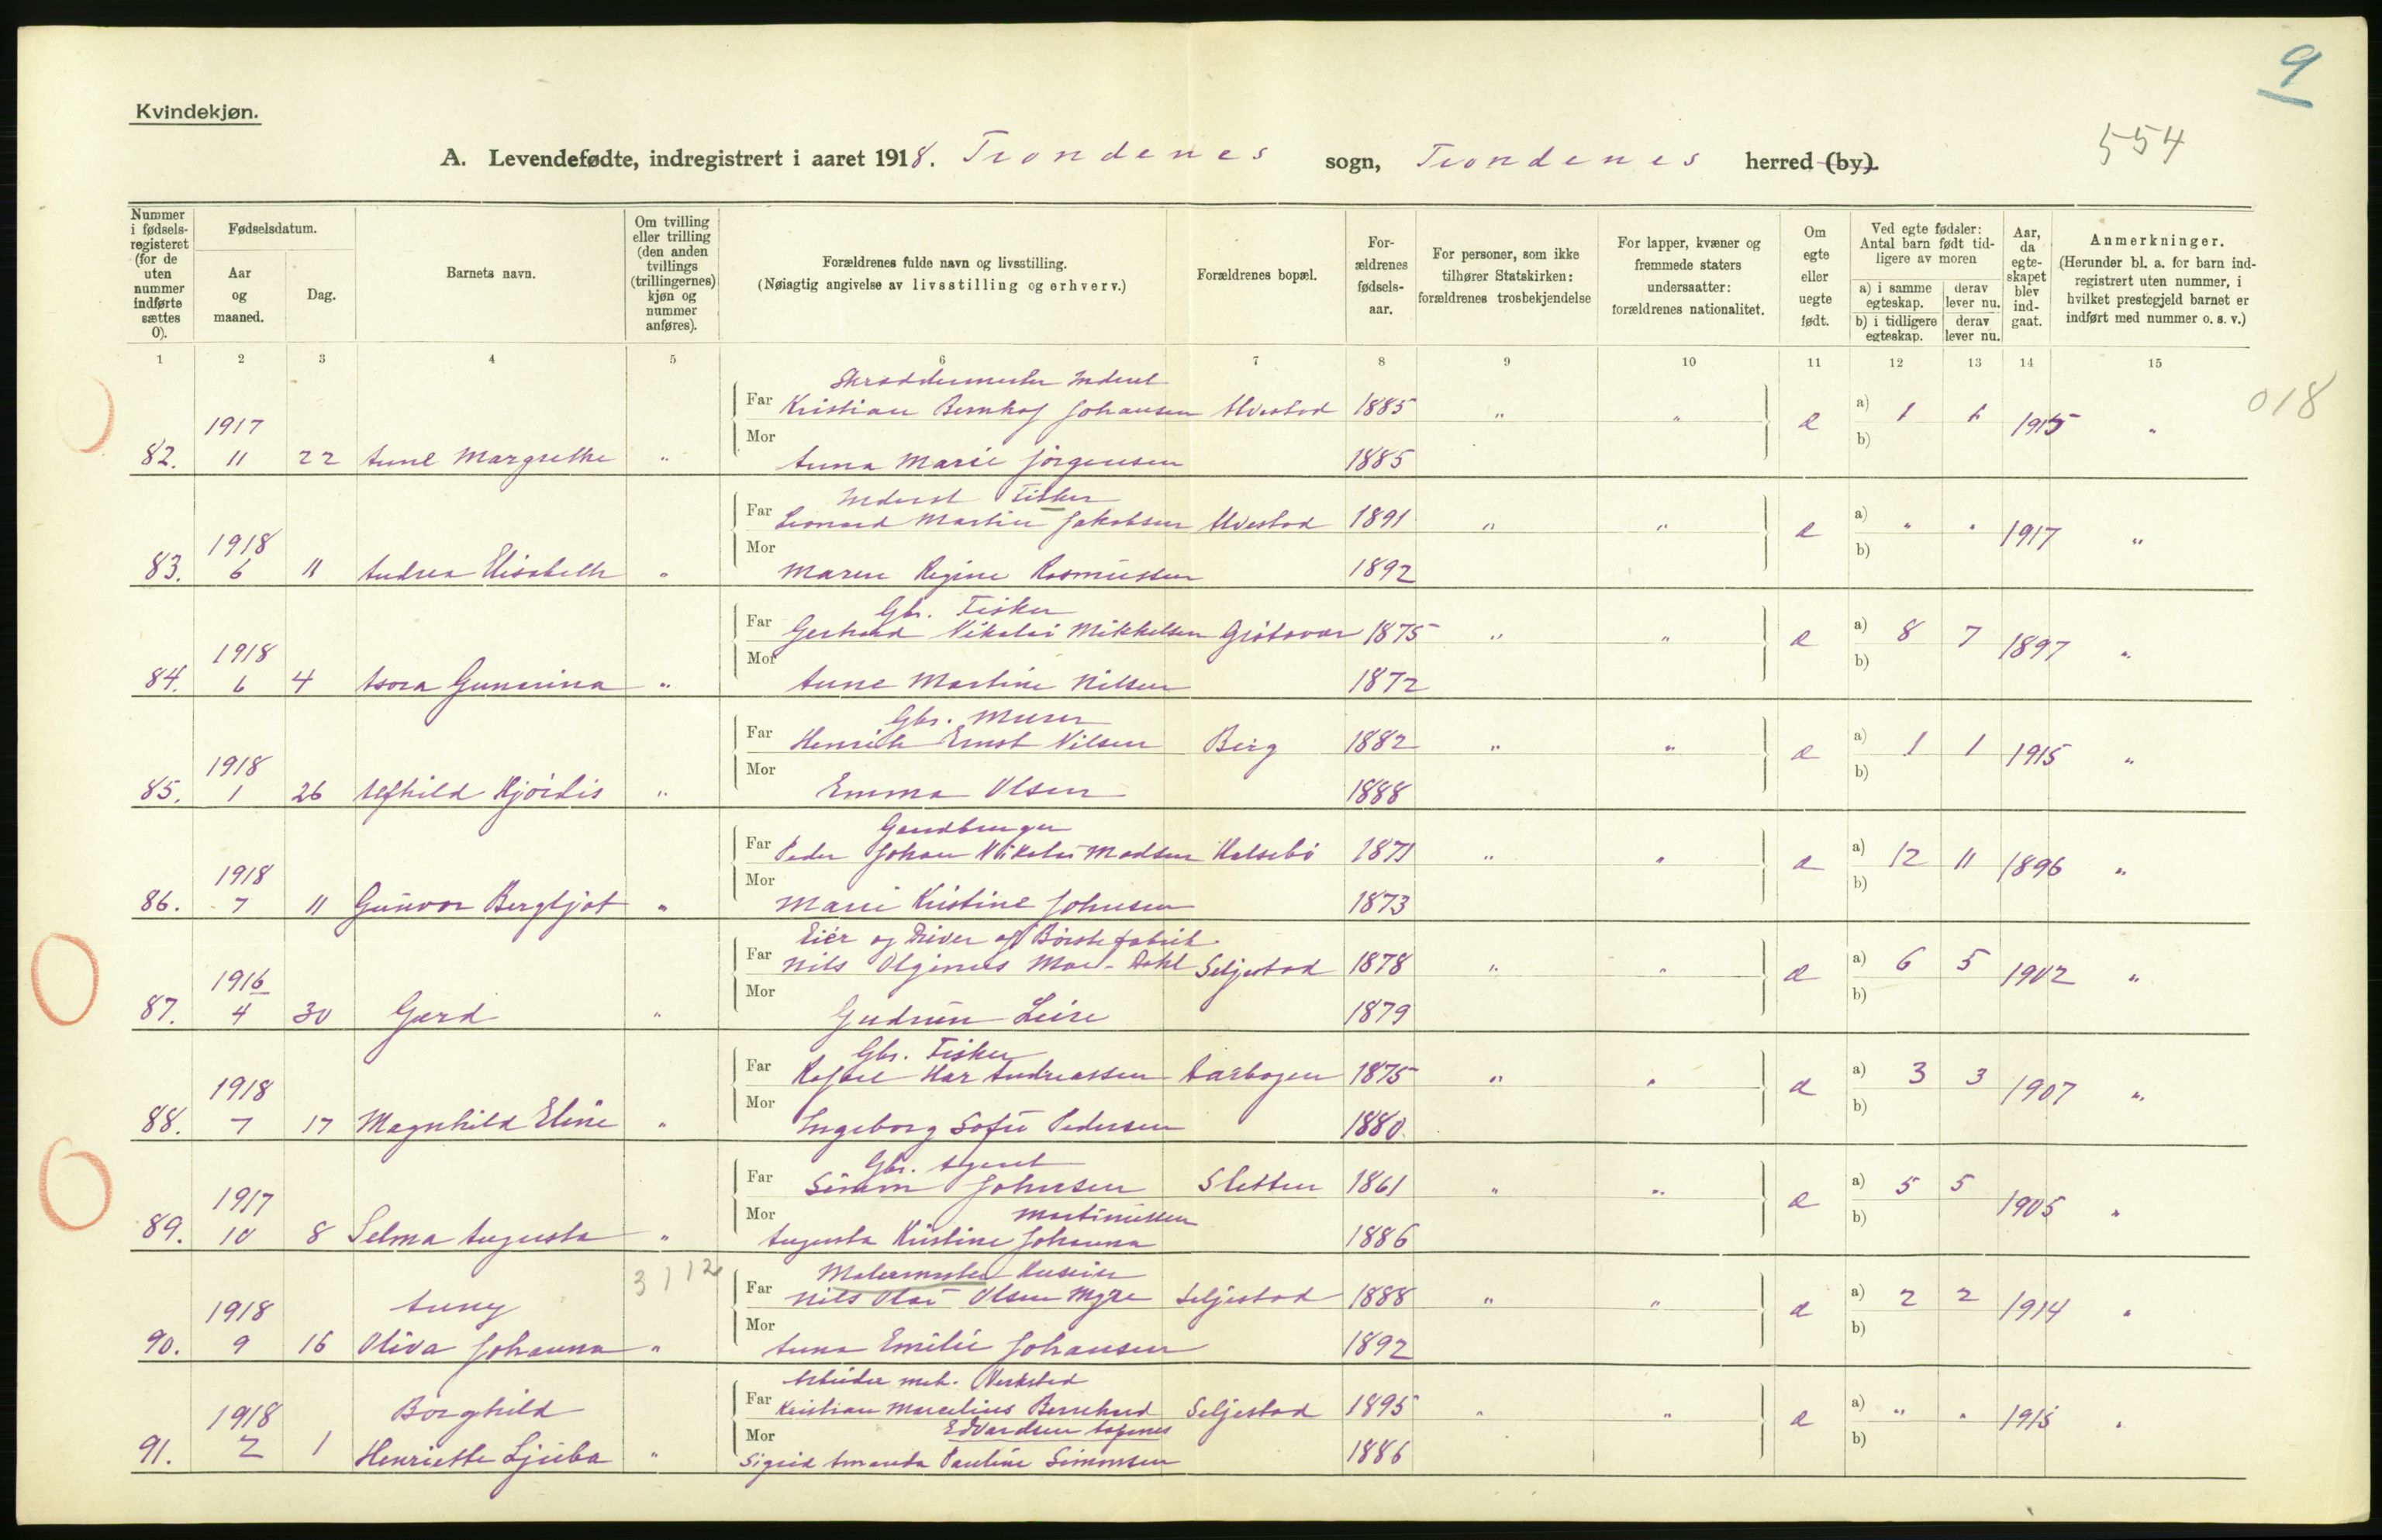 9
Kvindekjøn.
554
A. Levendefødte, indregistrert i aaret 1918. Trondenes sogn, Trondenes herred (by).
Nummer i fødselsregisteret (for de uten nummer indførte sættes 0).
Fødselsdatum.
Aar og maaned.
Dag.
Barnets navn.
Om tvilling eller trilling (den anden tvillings (trillingernes) kjøn og nummer anføres).
Forældrenes fulde navn og livsstilling.
(Nøiagtig angivelse av livsstilling og erhverv.)
Forældrenes bopæl.
Forældrenes fødselsaar.
For personer, som ikke tilhører Statskirken: forældrenes trosbekjendelse
For lapper, kvæner og fremmede staters undersaatter: forældrenes nationalitet.
Om egte eller uegte født.
Ved egte fødsler: Antal barn født tidligere av moren
a) i samme egteskap.
derav lever nu.
b) i tidligere egteskap.
derav lever nu.
Aar, da egteskapet blev indgaat.
Anmerkninger.
(Herunder bl. a. for barn indregistrert uten nummer, i hvilket prestegjeld barnet er indført med nummer o. s. v.)
1 2 3 4 5 6 7 8 9 10 11 12 13 14 15
018
Skræddermester Inderst
Far Kristian Johansen 1885 " " a) 1 1 1915 "
1917 Mor b)
82. 11 22 Anne Margrethe " Anna Marie Jørgensen 1885
Inderst Fisker
Far Leonard Martin Jakobsen 1891 " " a) " " 1917 "
1918 Mor b)
83. 6 11 Andrea Elisabeth " Maren Regine Rasmussen 1892
Gbr. Fisker
Far Gerhard Nikolai Mikkelsen Grøtavær 1875 " " a) 8 7 1897 "
1918 Mor b)
84. 6 4 Asora Gunerina " Anne Martine Nilsen 1872
Gbr. Murer
Far Henrik Ernst Nilsen Berg 1882 " " a) 1 1 1915 "
1918 Mor b)
85. 1 26 Alfhild Hjördis " Emma Olsen 1888
Gaardbruger
Far Peder Johan Nikolai Madsen Halsebø 1871 " " a) 12 11 1896 "
1918 Mor b)
86. 7 11 Gunvor Bergljot " Marie Kristine Johnsen 1873
Eier og Driver af Børstefabrik
Far Nils Olginus Moe-Dahl Seljestad 1878 " " a) 6 5 1902 "
1916 Mor b)
87. 4 30 Gerd " Gudrun 1879
Gbr. Fisker
Far Andreassen Aarbogen 1875 " " a) 3 3 1907 "
1918 Mor b)
88. 7 17 Magnhild Eline " Ingeborg Sofie Pedersen 1880.
Gbr. Agent
Far Simon Johnsen Sletten 1861 " " a) 5 5 1905 "
1917 Mor Martinussen b)
89. 10 8 Selma Augusta " Augusta Kristine Johanna 1886
3 1 12
Malermester Huseier
Far Nils Olai Olsen Myre Seljestad 1888 " " a) 2 2 1914 "
1918 Anny Mor b)
90. 9 16 Oliva Johanna " Anna Emilie Johansen 1892
Arbeider mek. Verksted
Far Kristian Marelius Bernhard Seljestad 1895 " " a) " "
1918 Borghild Mor Edvardsen Aspenes b)
91. 2 1 Henriette Ljuba " Sigrid Amanda Pauline Simonsen 1886